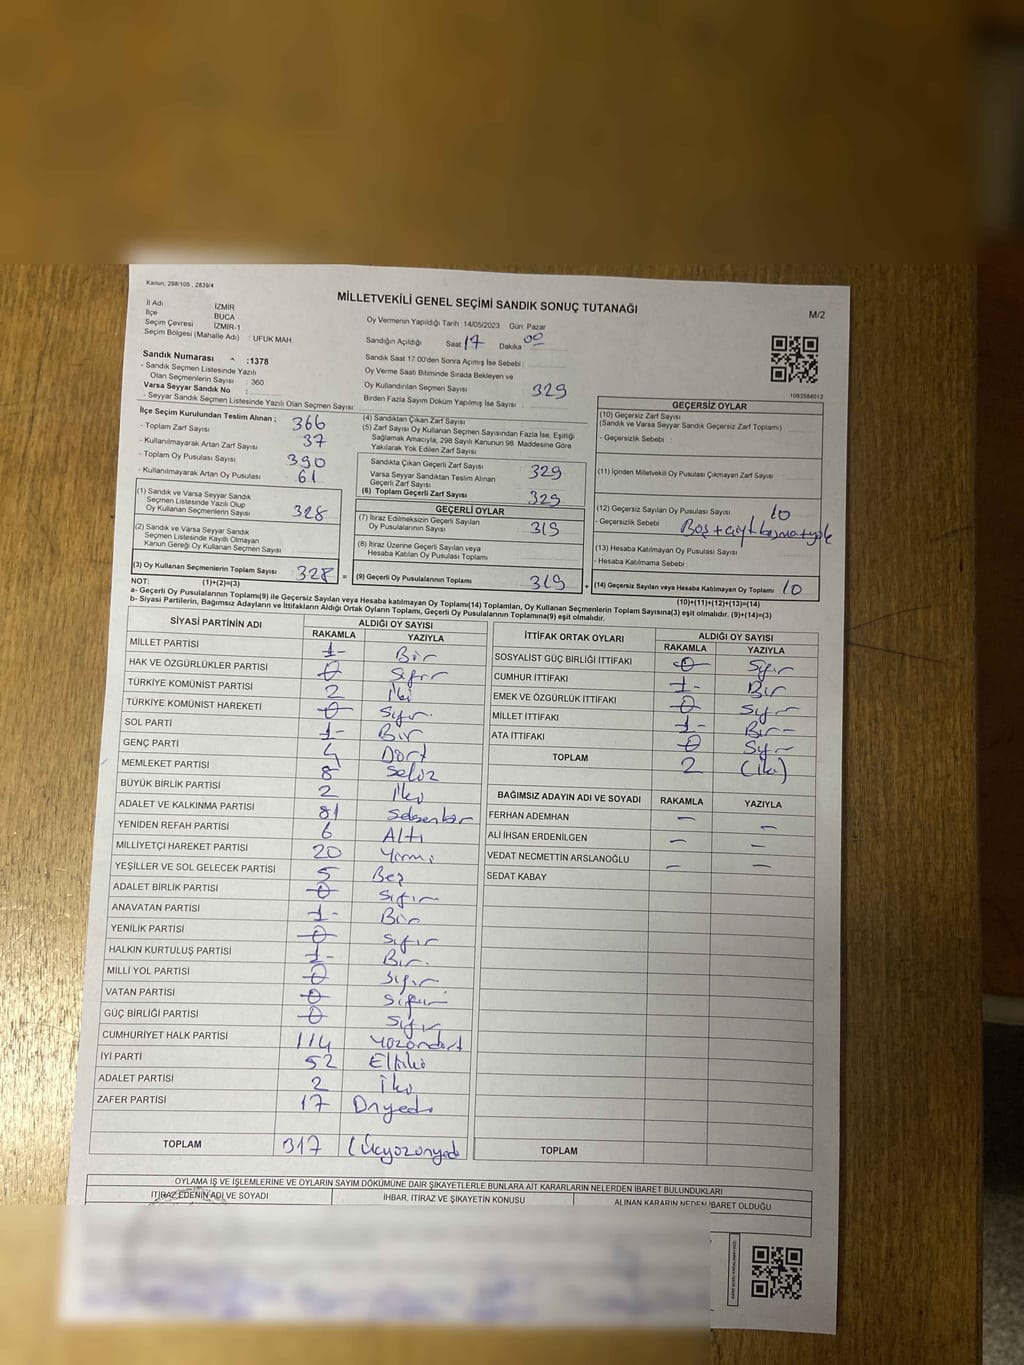 Kanun, 298/105 , 2839/4
MİLLETVEKİLİ GENEL SEÇİMİ SANDIK SONUÇ TUTANAĞI
M/2
İl Adı İZMİR
İlçe BUCA
Seçim Çevresi İZMİR-1
Seçim Bölgesi (Mahalle Adı) : UFUK MAH.
Oy Vermenin Yapıldığı Tarih 14/05/2023 Gün Pazar
Sandığın Açıldığı Saat 17 Dakika 00
Sandık Saat 17:00'den Sonra Açmış İse Sebebi :
Oy Verme Saati Bitiminde Sırada Bekleyen ve
Oy Kullandırılan Seçmen Sayısı 329
Birden Fazla Sayım Döküm Yapılmış İse Sayısı :
Sandık Numarası :1378
- Sandık Seçmen Listesinde Yazılı
Olan Seçmenlerin Sayısı : 360
Varsa Seyyar Sandık No :
- Seyyar Sandık Seçmen Listesinde Yazılı Olan Seçmen Sayısı
1083584012
İlçe Seçim Kurulundan Teslim Alınan ;
- Toplam Zarf Sayısı 366
- Kullanılmayarak Artan Zarf Sayısı 37
- Toplam Oy Pusulası Sayısı 390
- Kullanılmayarak Artan Oy Pusulası 61
(1) Sandık ve Varsa Seyyar Sandık
Seçmen Listesinde Yazılı Olup
Oy Kullanan Seçmenlerin Sayısı 328
(2) Sandık ve Varsa Seyyar Sandık
Seçmen Listesinde Kayıtlı Olmayan
Kanun Gereği Oy Kullanan Seçmen Sayısı
(3) Oy Kullanan Seçmenlerin Toplam Sayısı 328 =
(4) Sandıktan Çıkan Zarf Sayısı
(5) Zarf Sayısı Oy Kullanan Seçmen Sayısından Fazla İse, Eşitliği
Sağlamak Amacıyla, 298 Sayılı Kanunun 98. Maddesine Göre
Yakılarak Yok Edilen Zarf Sayısı
Sandıkta Çıkan Geçerli Zarf Sayısı 329
Varsa Seyyar Sandıktan Teslim Alınan
Geçerli Zarf Sayısı
(6) Toplam Geçerli Zarf Sayısı 329
GEÇERLİ OYLAR
(7) İtiraz Edilmeksizin Geçerli Sayılan
Oy Pusulalarının Sayısı 319
(8) İtiraz Üzerine Geçerli Sayılan veya
Hesaba Katılan Oy Pusulası Toplamı
(9) Geçerli Oy Pusulalarının Toplamı 319 +
GEÇERSİZ OYLAR
(10) Geçersiz Zarf Sayısı
(Sandık ve Varsa Seyyar Sandık Geçersiz Zarf Toplamı)
- Geçersizlik Sebebi :
(11) İçinden Milletvekili Oy Pusulası Çıkmayan Zarf Sayısı
(12) Geçersiz Sayılan Oy Pusulası Sayısı 10
- Geçersizlik Sebebi Boş +
(13) Hesaba Katılmayan Oy Pusulası Sayısı
- Hesaba Katılmama Sebebi :
(14) Geçersiz Sayılan veya Hesaba Katılmayan Oy Toplamı 10
NOT: (1)+(2)=(3)
(10)+(11)+(12)+(13)=(14)
a- Geçerli Oy Pusulasının Toplamı(9) ile Geçersiz Sayılan veya Hesaba katılmayan Oy Toplamı(14) Toplamları, Oy Kullanan Seçmenlerin Toplam Sayısına(3) eşit olmalıdır. (9)+(14)=(3)
b- Siyasi Partilerin, Bağımsız Adayların ve İttifakların Aldığı Ortak Oyların Toplamı, Geçerli Oy Pusulalarının Toplamına(9) eşit olmalıdır.
SİYASİ PARTİNİN ADI ALDIĞI OY SAYISI
RAKAMLA YAZIYLA
MİLLET PARTİSİ 1- Bir
HAK VE ÖZGÜRLÜKLER PARTİSİ 0 Sıfır
TÜRKİYE KOMÜNİST PARTİSİ 2 İki
TÜRKİYE KOMÜNİST HAREKETİ 0 Sıfır
SOL PARTİ 1- Bir
GENÇ PARTİ 4 Dört
MEMLEKET PARTİSİ 8 Sekiz
BÜYÜK BİRLİK PARTİSİ 2 İki
ADALET VE KALKINMA PARTİSİ 81 Seksenbir
YENİDEN REFAH PARTİSİ 6 Altı
MİLLİYETÇİ HAREKET PARTİSİ 20 Yirmi
YEŞİLLER VE SOL GELECEK PARTİSİ 5 Beş
ADALET BİRLİK PARTİSİ 0 Sıfır
ANAVATAN PARTİSİ 1- Bir
YENİLİK PARTİSİ 0 Sıfır
HALKIN KURTULUŞ PARTİSİ 1- Bir
MİLLİ YOL PARTİSİ 0 Sıfır
VATAN PARTİSİ 0 Sıfır
GÜÇ BİRLİĞİ PARTİSİ 0 Sıfır
CUMHURİYET HALK PARTİSİ 114 Yüzondört
İYİ PARTİ 52 Elliiki
ADALET PARTİSİ 2 İki
ZAFER PARTİSİ 17 Onyedi
TOPLAM 317 (Üçyüzonyedi
İTTİFAK ORTAK OYLARI ALDIĞI OY SAYISI
RAKAMLA YAZIYLA
SOSYALİST GÜÇ BİRLİĞİ İTTİFAKI 0 Sıfır
CUMHUR İTTİFAKI 1- Bir
EMEK VE ÖZGÜRLÜK İTTİFAKI 0 Sıfır
MİLLET İTTİFAKI 1- Bir-
ATA İTTİFAKI 0 Sıfır
TOPLAM 2 (İki)
BAĞIMSIZ ADAYIN ADI VE SOYADI RAKAMLA YAZIYLA
FERHAN ADEMHAN — —
ALİ İHSAN ERDENİLGEN — —
VEDAT NECMETTİN ARSLANOĞLU — —
SEDAT KABAY
TOPLAM
OYLAMA İŞ VE İŞLEMLERİNE VE OYLARIN SAYIM DÖKÜMÜNE DAİR ŞİKAYETLERLE BUNLARA AİT KARARLARIN NELERDEN İBARET BULUNDUKLARI
İTİRAZ EDENİN ADI VE SOYADI İHBAR, İTİRAZ VE ŞİKAYETİN KONUSU ALINAN KARARIN NEDEN İBARET OLDUĞU